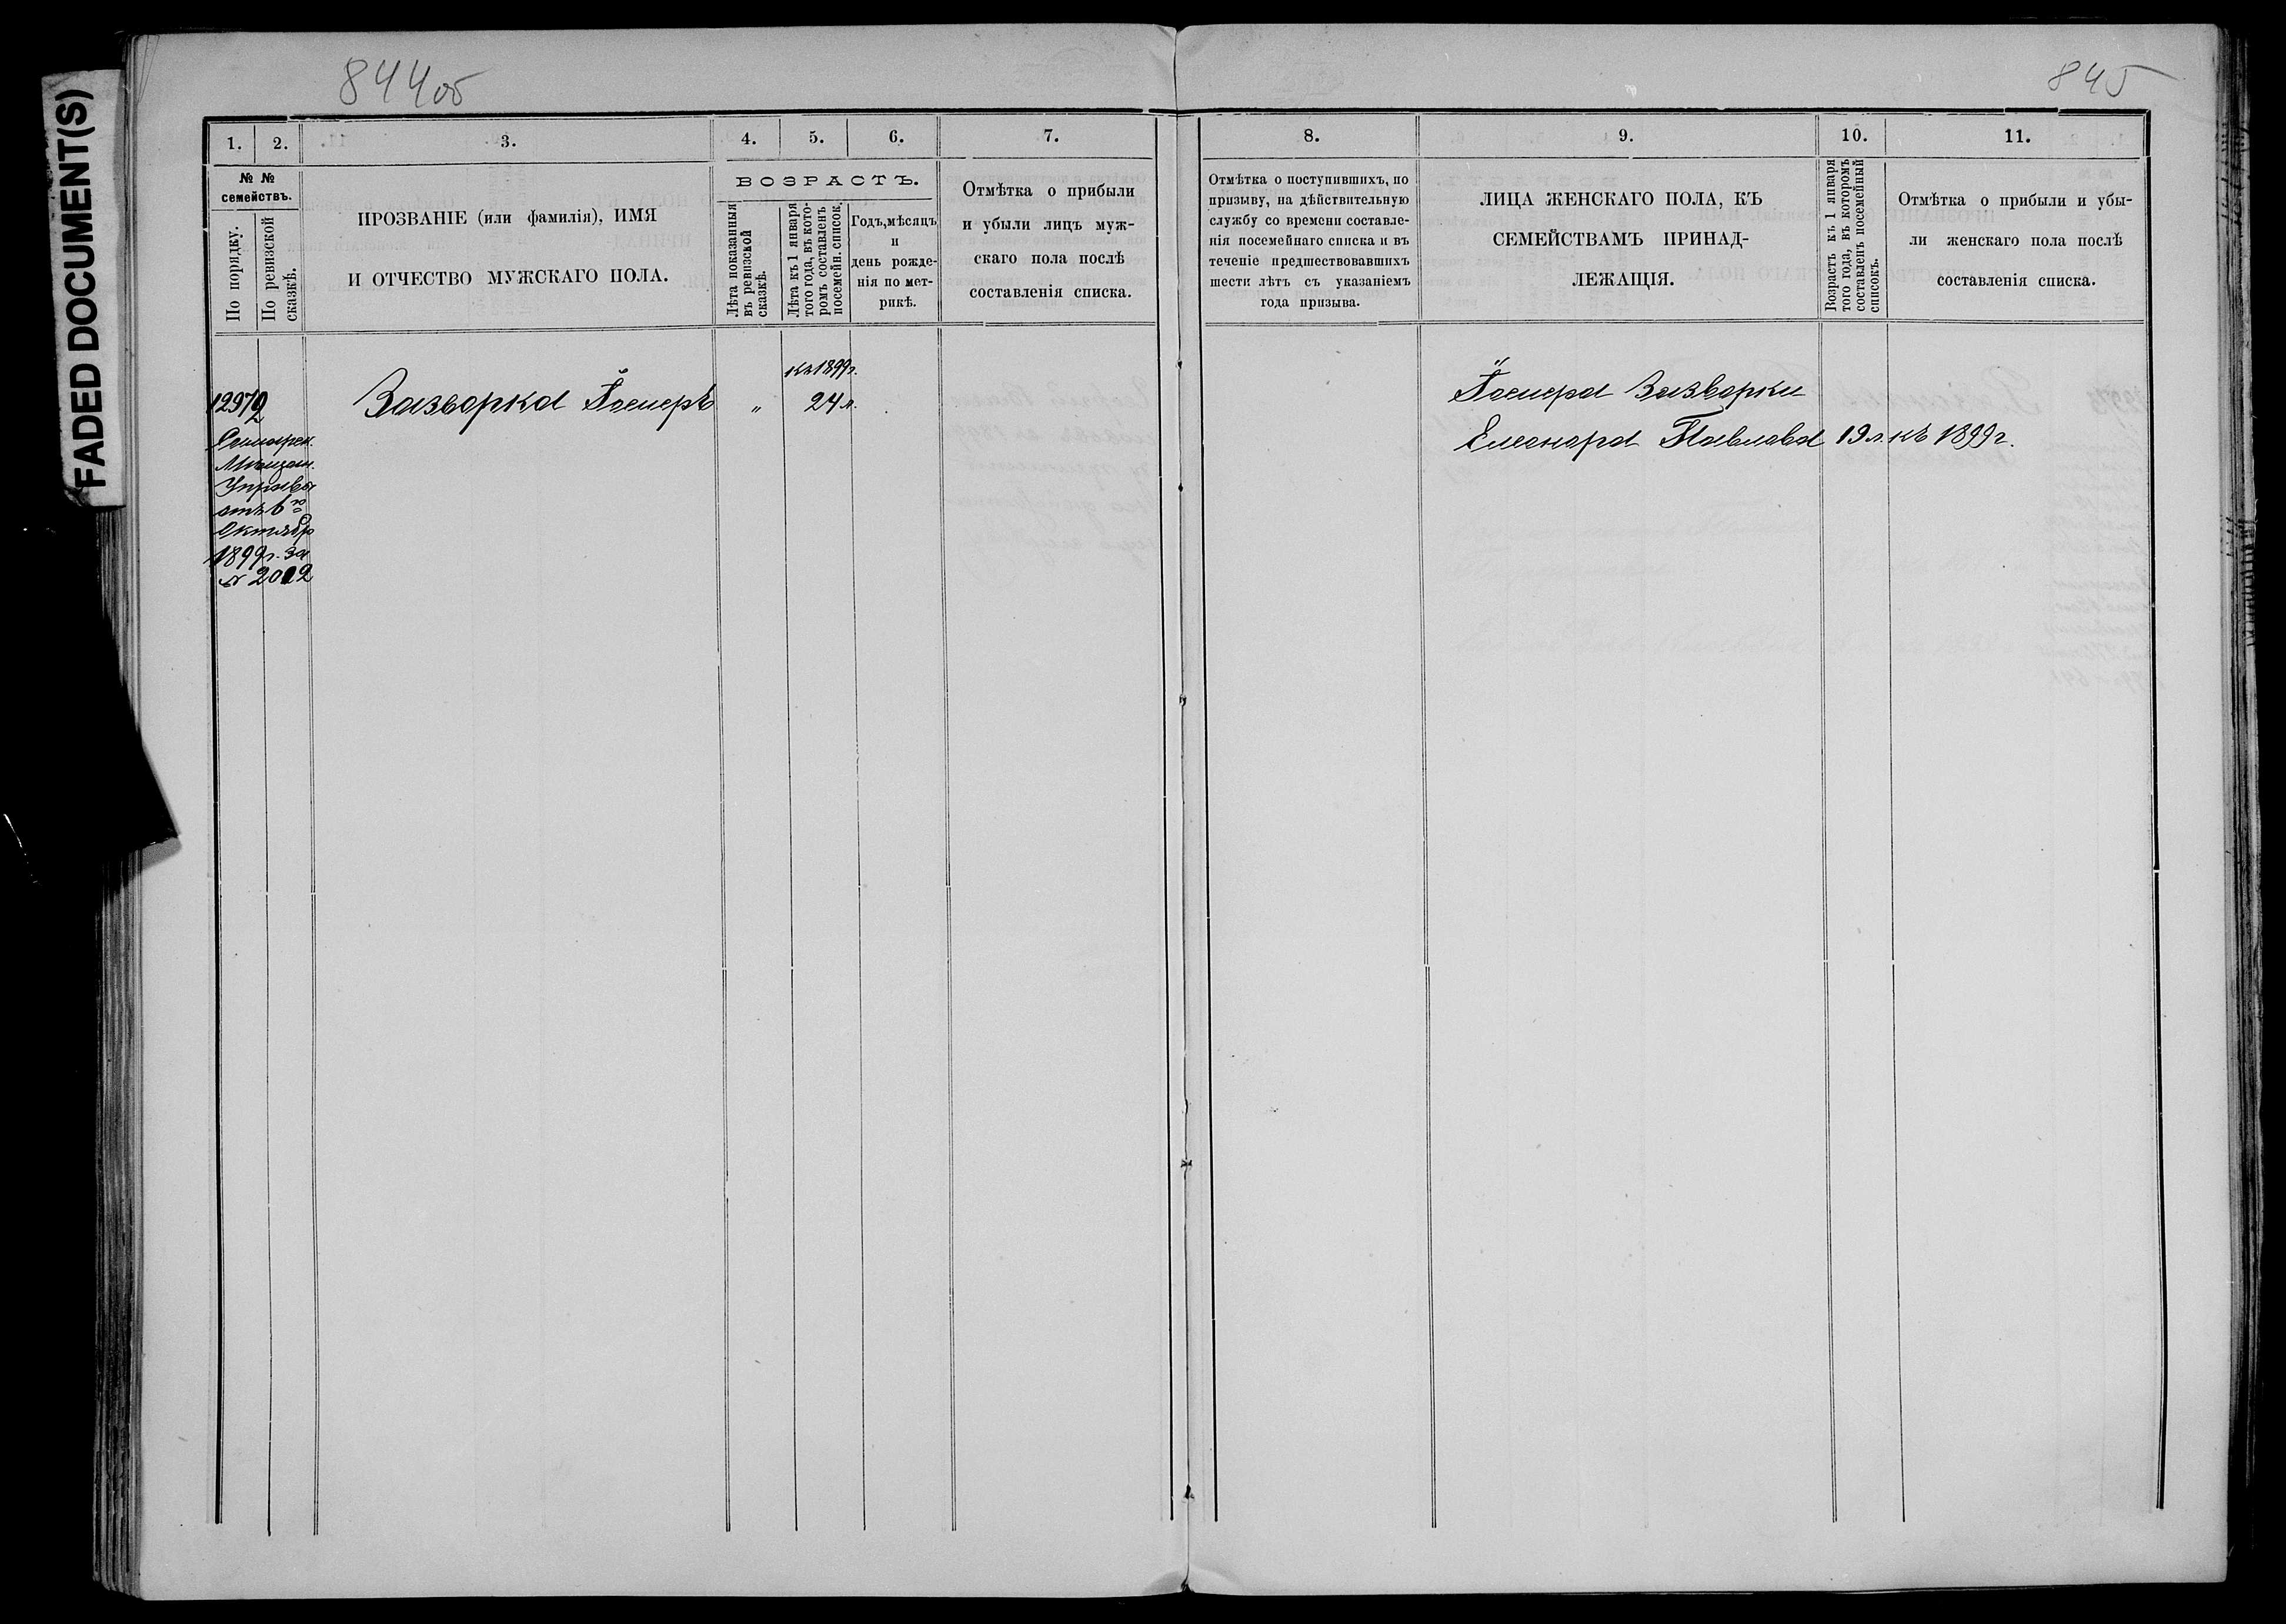 FADED DOCUMENT(S)
844 об
845
1. 2. 3. 4. 5. 6. 7.
№ №
семействъ.
По порядку.
По ревизской
сказкѣ.
ПРОЗВАНІЕ (или фамилія), ИМЯ
И ОТЧЕСТВО МУЖСКАГО ПОЛА.
ВОЗРАСТЪ.
Лѣта показанныя
въ ревизской
сказкѣ.
Лѣта къ 1 января
того года, въ кото-
ромъ составленъ
посемейн. список.
Годъ, мѣсяцъ
и
день рожде-
нія по мет-
рикѣ.
Отмѣтка о прибыли
и убыли лицъ муж-
скаго пола послѣ
составленія списка.
12972
Мѣщан.
Управы
отъ 6го
Октябр
1899 г. за
№ 2012
Зазворка
къ 1899 г.
„ 24 л.
8. 9. 10. 11.
Отмѣтка о поступившихъ, по
призыву, на дѣйствительную
службу со времени составле-
нія посемейнаго списка и въ
теченіе предшествовавшихъ
шести лѣтъ съ указаніемъ
года призыва.
ЛИЦА ЖЕНСКАГО ПОЛА, КЪ
СЕМЕЙСТВАМЪ ПРИНАД-
ЛЕЖАЩІЯ.
Возрастъ къ 1 января
того года, въ которомъ
составленъ посемейный
списокъ.
Отмѣтка о прибыли и убы-
ли женскаго пола послѣ
составленія списка.
Зазворки
Елеонора Павлова 19 л. къ 1899 г.